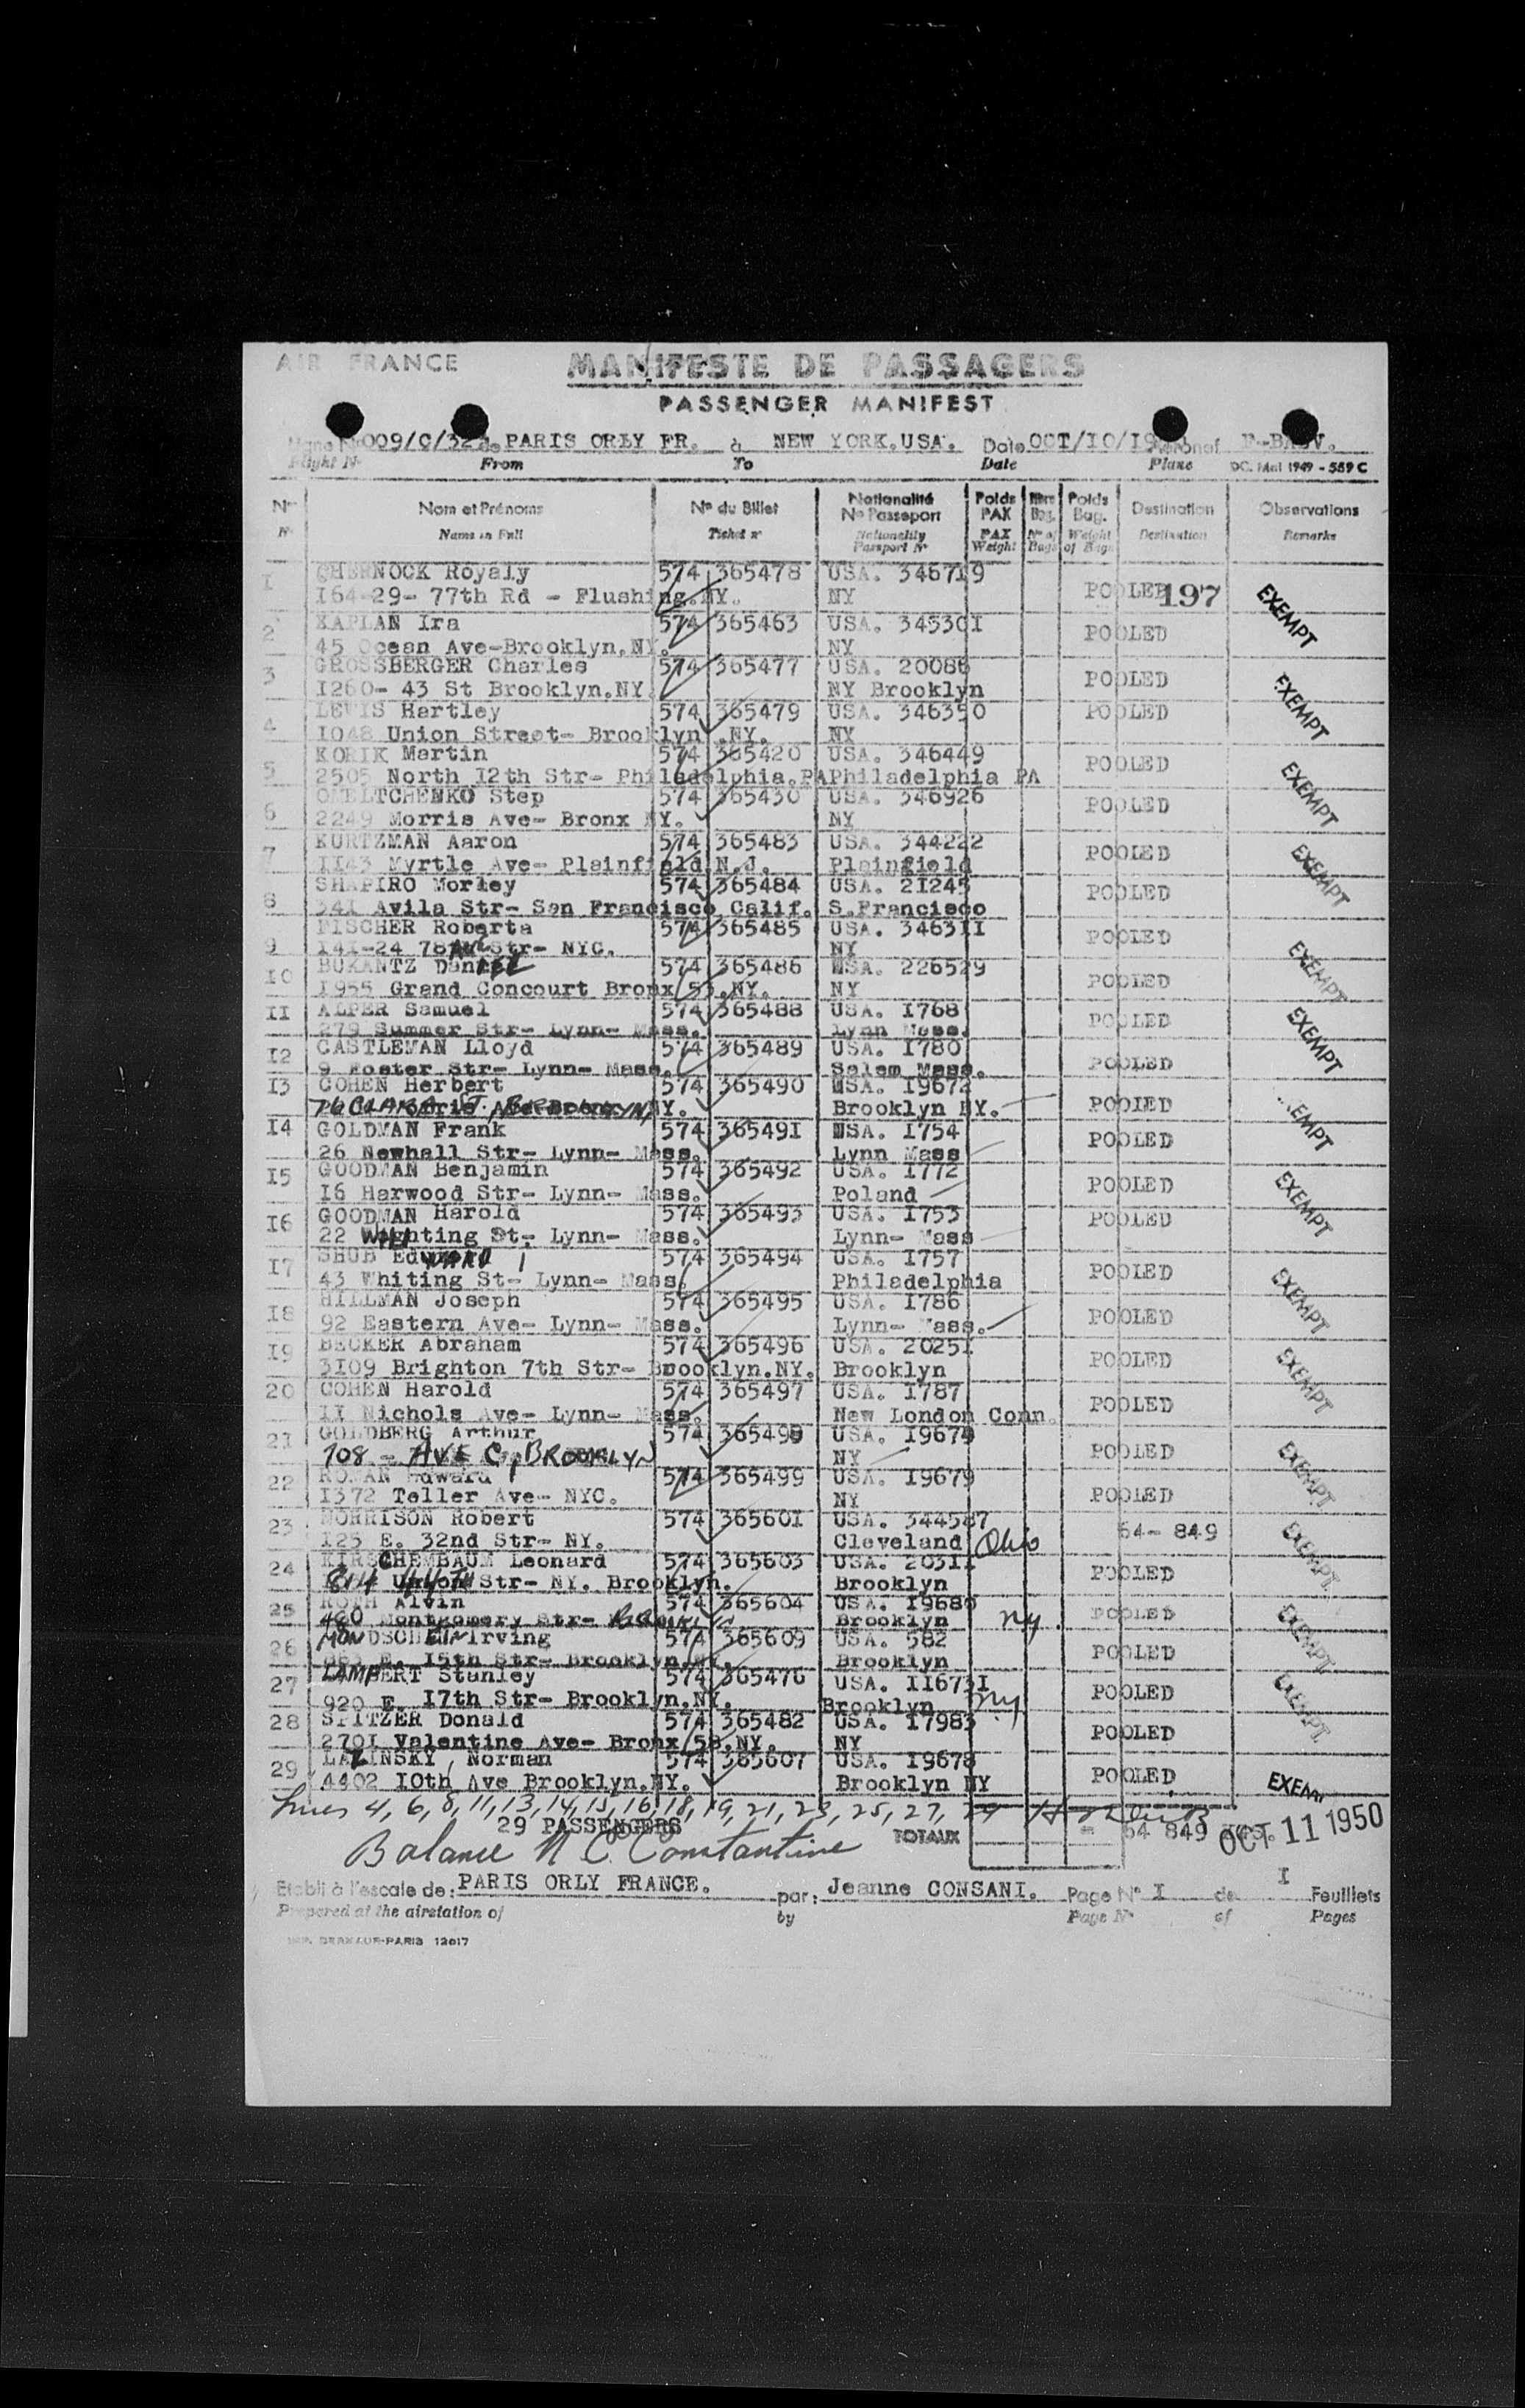 AIR FRANCE
MANIFESTE DE PASSAGERS
PASSENGER MANIFEST
009/C/32 de PARIS ORLY FR. à NEW YORK.USA. Date OCT/10/19
Flight N° From To Date Plane DC. Mai 1949 - 589 C
N° Nom et Prénoms N° du Billet Nationalité N° Passeport Poids PAX Nbre Bag. Poids Bag. Destination Observations
N° Name in Full Ticket n° Nationality Passport N° PAX Weight N° of Bags Weight of Bags Destination Remarks
1 CHERNOCK Royaly 574 365478 USA. 346719
164-29- 77th Rd - Flushing.NY. NY POOLED 197 EXEMPT
2 KAPLAN Ira 574 365463 USA. 345301 POOLED
45 Ocean Ave-Brooklyn.NY. NY
3 GROSSBERGER Charles 574 365477 USA. 20086 POOLED EXEMPT
1260- 43 St Brooklyn.NY. NY Brooklyn
4 LEVIS Hartley 574 365479 USA. 346350 POOLED
1048 Union Street- Brooklyn .NY. NY
5 KORIK Martin 574 365420 USA. 346449 POOLED EXEMPT
2505 North 12th Str- Philadelphia.PA Philadelphia PA
6 OMELTCHENKO Step 574 365430 USA. 346926 POOLED
2249 Morris Ave- Bronx NY. NY
7 KURTZMAN Aaron 574 365483 USA. 344222 POOLED EXEMPT
1143 Myrtle Ave- Plainfield N.J. Plainfield
8 SHAPIRO Morley 574 365484 USA. 21245 POOLED
341 Avila Str- San Francisco Calif. S.Francisco
9 FISCHER Roberta 574 365485 USA. 346311 POOLED EXEMPT
141-24 78 Str- NYC. NY
10 BUKANTZ Daniel 574 365486 USA. 226529 POOLED
1955 Grand Concourt Bronx 53.NY. NY
11 ALPER Samuel 574 365488 USA. 1768 POOLED EXEMPT
279 Summer Str- Lynn- Mass. Lynn Mass.
12 CASTLEMAN Lloyd 574 365489 USA. 1780 POOLED
9 Foster Str- Lynn- Mass. Salem Mass.
13 COHEN Herbert 574 365490 USA. 19672 POOLED EMPT
76 CLARA ST. BROOKLYN NY. Brooklyn NY.
14 GOLDMAN Frank 574 365491 USA. 1754 POOLED
26 Newhall Str- Lynn- Mass. Lynn Mass
15 GOODMAN Benjamin 574 365492 USA. 1772 POOLED EXEMPT
16 Harwood Str- Lynn- Mass. Poland
16 GOODMAN Harold 574 365493 USA. 1753 POOLED
22 Whiting St- Lynn- Mass. Lynn- Mass
17 SHUB EdWARD 574 365494 USA. 1757 POOLED EXEMPT
43 Whiting St- Lynn- Mass. Philadelphia
18 HILLMAN Joseph 574 365495 USA. 1786 POOLED
92 Eastern Ave- Lynn- Mass. Lynn- Mass.
19 BECKER Abraham 574 365496 USA. 20251 POOLED EXEMPT
3109 Brighton 7th Str- Brooklyn.NY. Brooklyn
20 COHEN Harold 574 365497 USA. 1787 POOLED
11 Nichols Ave- Lynn- Mass. New London Conn.
21 GOLDBERG Arthur 574 365498 USA. 19674 POOLED EXEMPT
708 - AVE C, BROOKLYN NY
22 ROMAN Edward 574 365499 USA. 19679 POOLED
1372 Teller Ave- NYC. NY
23 NORRISON Robert 574 365601 USA. 344587 64- 849 EXEMPT
125 E. 32nd Str- NY. Cleveland Ohio
24 KIRSCHENBAUM Leonard 574 365603 USA. 20311 POOLED
814 44TH Str- NY. Brooklyn. Brooklyn
25 ROTH Alvin 574 365604 USA. 19680 POOLED EXEMPT
480 Montgomery Str- Brooklyn Brooklyn NY.
26 MONDSCHEIN Irving 574 365609 USA. 582 POOLED
963 E. 15th Str- Brooklyn.NY. Brooklyn
27 LAMPERT Stanley 574 365476 USA. 116731 POOLED EXEMPT
920 E. 17th Str- Brooklyn.NY. Brooklyn ny
28 SPITZER Donald 574 365482 USA. 17983 POOLED
2701 Valentine Ave- Bronx 58.NY. NY
29 LAZINSKY Norman 574 365607 USA. 19678 POOLED EXEMPT
4402 10th Ave Brooklyn.NY. Brooklyn NY
Lines 4, 6, 8, 11, 13, 14, 15, 16, 18, 19, 21, 23, 25, 27, 29
29 PASSENGERS TOTAUX - 64 849 OCT 11 1950
Balance N C Constantine
Etabli à l'escale de: PARIS ORLY FRANCE. par: Jeanne CONSANI. Page N° I de I Feuillets
Prepared at the airstation of by Page N° of Pages
12017